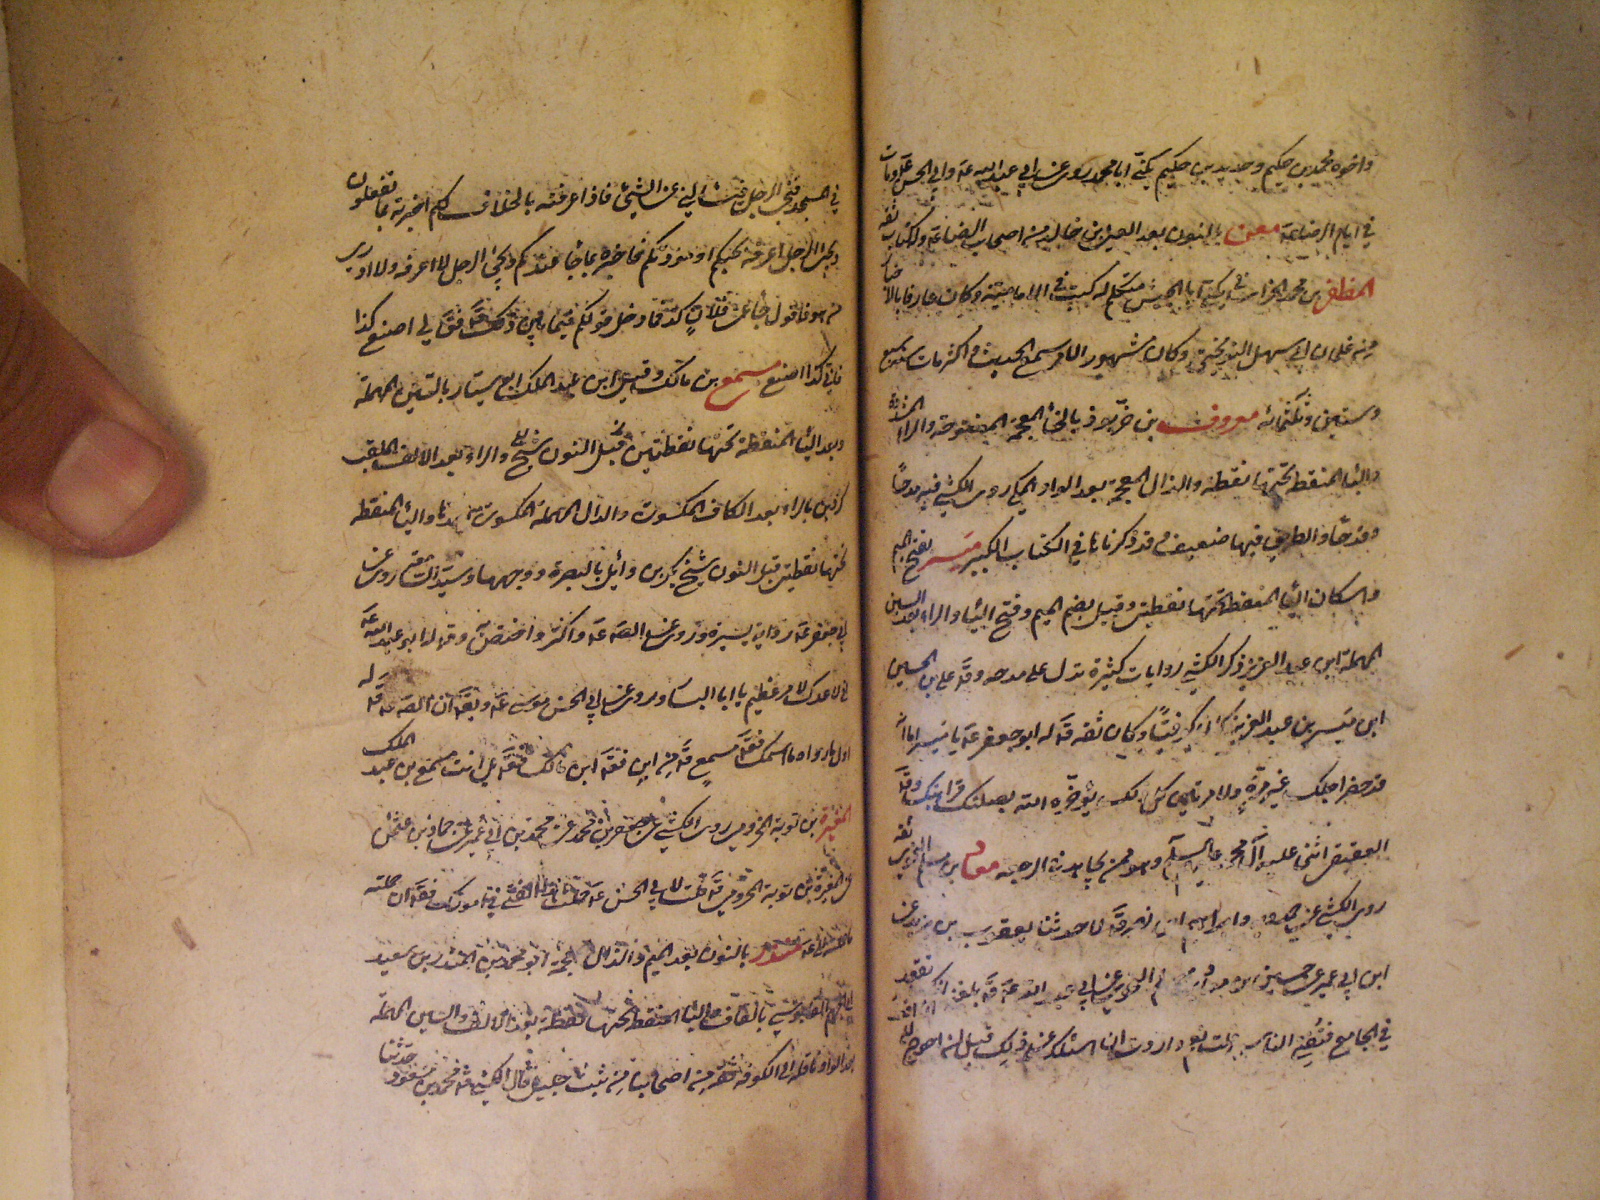 واخوه محمد بن حكيم وحديد بن حكيم يكنى ابا محمد روى عن ابي عبد الله عه وابي الحسن عه ومات
في ايام الرضا عه معن بالنون بعد العين بن خالد من اصحاب الرضا عه وله كتاب ثقه
المظفر بن محمد الخراساني يكنى ابا الجيش متكلم له كتب في الامامية وكان عارفا بالاخبار
من غلمان ابي سهل النوبختي وكان مشهور الامر سمع الحديث فاكثر مات سنه سبع
وستين وثلثمائه معروف بن خربوذ بالخاء المعجمة المفتوحة والراء المشددة
والباء المنقطة تحتها نقطة والذال المعجمة بعد الواو المكي روى الكشي فيه مدحا
وقدحا والطريق فيها ضعيف وقد ذكرناها في الكتاب الكبير ميسر بفتح الميم
واسكان الياء المنقطة تحتها نقطتين وقيل بضم الميم وفتح الياء والراء بعد السين
المهملة ابن عبد العزيز ذكر الكشي روايات كثيرة تدل على مدحه وقه علي بن الحسين
ابن ميسر بن عبد العزيز كان كوفيا وكان ثقه قه له ابو جعفر عه يا ميسر اما انه
قد حضر اجلك غير مرة ولا مرتين كل ذلك يؤخره الله بصلتك قرابتك وقه
العقيقي اثنى عليه آل محمد عليهم السلام وهو ممن يجاهد في الرجعه معاذ بن مسلم النحوي ثقه
روى الكشي عن حمدويه وابراهيم ابني نصير قه لا حدثنا يعقوب بن يزيد عن
ابن ابي عمير عن حسين بن معاذ عن ابيه معاذ بن مسلم النحوي عن ابي عبد الله عه قه بلغني انك تقعد
في الجامع فتفتي الناس قلت نعم واردت ان اسئلك عن ذلك قبل ان اخرج اني اقعد
في المسجد فيجئ الرجل فيسئالني عن الشيئ فاذا عرفته بالخلاف لكم اخبرته بما يفعلون
ويجئ الرجل اعرفه بحبكم او مودتكم فاخبره بما جاء عنكم ويجئ الرجل لا اعرفه ولا ادري
من هو فاقول جاء عن فلان كذا فادخل قولكم فيما بين ذلك قه فقال لي اصنع كذا
فاني كذا اصنع مسمع بن مالك وقيل ابن عبد الملك ابو سيار بالسين المهملة
وبعد الياء المنقطة تحتها نقطتين قبل النون شيخ والراء بعد الالف الملقب
كردين بالراء بعد الكاف المكسورة والدال المهملة المكسورة بعدها والياء المنقطة
تحتها نقطتين قبل النون شيخ بكر بن وائل بالبصرة ووجهها وسيد المسامعة روى عن
ابي جعفر عه رواية يسيرة وروى عن ابي عبد الله عه واكثر واختص به وقه له ابو عبد الله عه
اني لاعدك لامر عظيم يا ابا السيار وروى عن ابي الحسن موسى عه وبقه ان الصه عه قه له
اول ما رواه ما اسمك فقه مسمع قه من ابن فقه ابن مالك فقه بل انت مسمع بن عبد الملك
المغيرة بن توبة المخزومي روى الكشي عن جعفر بن محمد عن محمد بن ابي عمير عن حماد بن عثمان
عن المغيرة بن توبة المخزومي قه قلت لابي الحسن عه حملت هذا الفتى في امورك فقه اني حملته
ما حملنيه ابي عه منذر بالنون بعد الميم والذال المعجمة ابو محمد بن المنذر بن سعيد
ابي الجهم القابوسي بالقاف والباء المنقطة تحتها نقطة بعد الالف والسين المهملة
بعد الواو ناقلة الى الكوفة ثقه من اصحابنا من بيت جليل قال الكشي قه محمد بن مسعود حدثنا